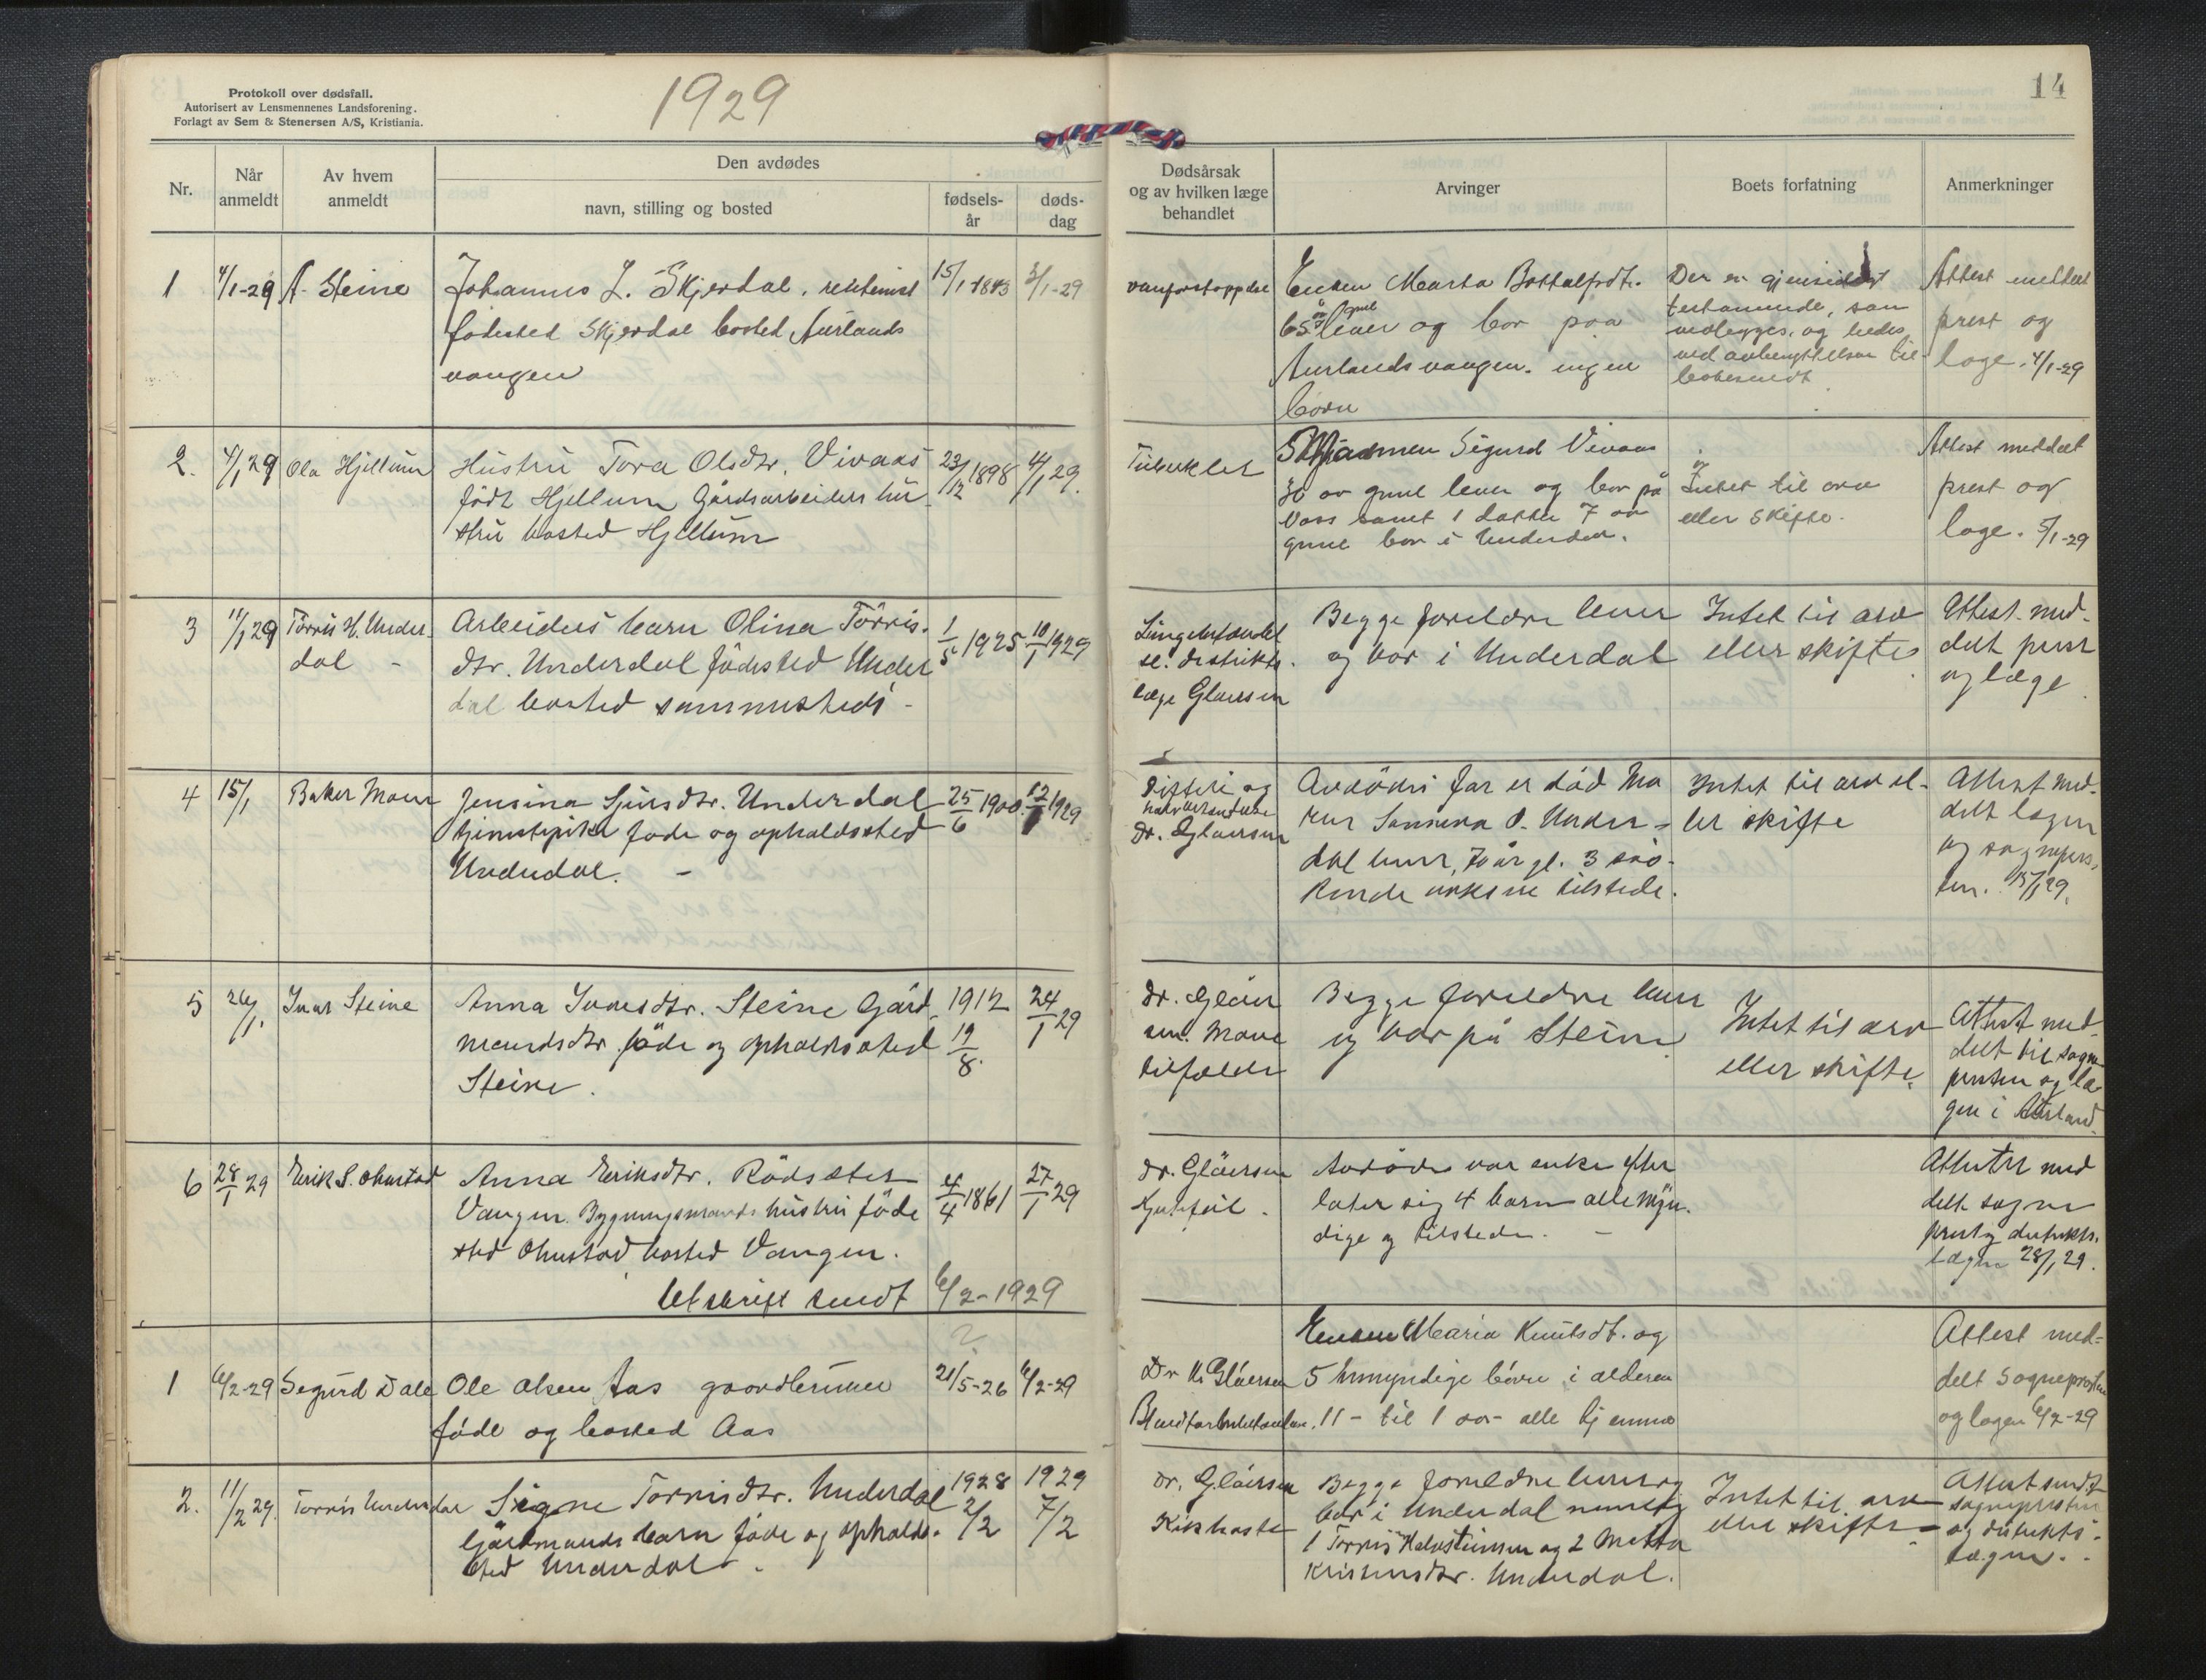 Protokoll over dødsfall.
Autorisert av Lensmennenes Landsforening.
Forlagt av Sem & Stenersen A/S, Kristiania.
1929
14
Nr.
Når anmeldt
Av hvem anmeldt
Den avdødes
navn, stilling og bosted
fødsels-år
døds-dag
Dødsårsak og av hvilken læge behandlet
Arvinger
Boets forfatning
Anmerkninger
1
4/1-29
A. Steine
Johannes L. Skjerdal,
fødested Skjerdal bosted Aurlands
vangen
15/1 1843
3/1-29
vanforstoppelse
Enken Marta Bottolfsdt.
65 år gml lever og bor paa
Aurlandsvangen. ingen
børn
Der er gjensidigt
testamende, som
vedlegges, og
Attest meddelt
prest og
læge. 4/1-29
2.
4/1 29
Ola Hjellum
Hustru Tora Olsdtr. Vivaas
født Hjellum Gårdsarbeiders hu
stru bosted Hjellum
23/12 1898
4/1 29.
Tuberkler
Mannen Sigurd Vivaas
30 år gml lever og bor på
Voss samt 1 datter 7 år
gml bor i Underdal.
Intet til arv
eller skifte.
Attest meddelt
prest og
læge. 5/1-29
3
11/1 29
Torris H. Under-
dal -
Arbeiders barn Olina Torris-
dtr. Underdal fødested Under
dal bosted sammesteds -
1/5 1925
10/1 1929
Lungebetændel
se. distrikts-
læge Gløersen
Begge foreldre lever
og bor i Underdal
Intet til arv
eller skifte
Attest med-
delt prest
og læge
4
15/1
Baker Moen
Jensina Sjursdtr. Underdal
tjenestepike føde og opholdssted
Underdal. -
25/6 1900
12/1 1929
Difteri og
Dr. Gløersen
Avdødes far er død Mo
ren Sannena O. Under-
dal lever, 70 år gl. 3 søs-
kende voksne tilstede.
Intet til arv el-
ler skifte
Attest med-
delt lægen
og sogneprs-
ten. 15/1 29.
5
26/1.
Ivar Steine
Anna Ivarsdtr. Steine Gård
mandsdtr. føde og opholdssted
Steine.
1912
19/8.
24/1 29
Dr. Gløer
sen. Mave
tilfælde
Begge foreldre lever
og bor på Steine
Intet til arv
eller skifte.
Attest med
delt til sogne
presten og læ-
gen i Aurland.
6
28/1 29
Erik S. Ohnstad
Anna Eriksdtr. Rødseter
Vangen. Bygningsmands hustru føde
sted Ohnstad bosted Vangen.
4/4 1861
27/1 29
Utskrift sendt 6/2-1929
Dr. Gløersen
Avdøde var enke efter
later sig 4 barn alle myn-
dige og tilstede. -
Attester med
delt sogne
prest og distrikts-
lægen 28/1 29.
1
6/2-29
Sigurd Dale
Ole Olsen Aas gaardbruker
føde og bosted Aas
?
21/5-26
6/2-29
Dr K. Gløersen
Enken Maria Knutsdt. og
5 umyndige børn i alderen
11- til 1 aar- alle hjemme
Attest med-
delt Sognepresten
og lægen 6/2-29
2.
11/2 29.
Torris Underdal
Signe Torrisdtr. Underdal
Gårdmands barn føde og opholds-
sted Underdal.
1928
2/2
1929
7/2
Dr. Gløersen
Kikhoste
Begge foreldre lever og
bor i Underdal nemlig
1 Torris Kristensen og 2 Metta
Kristensdtr. Underdal.
Intet til arv
eller skifte
Attest sendt
sognepresten
og distrikts-
lægen.